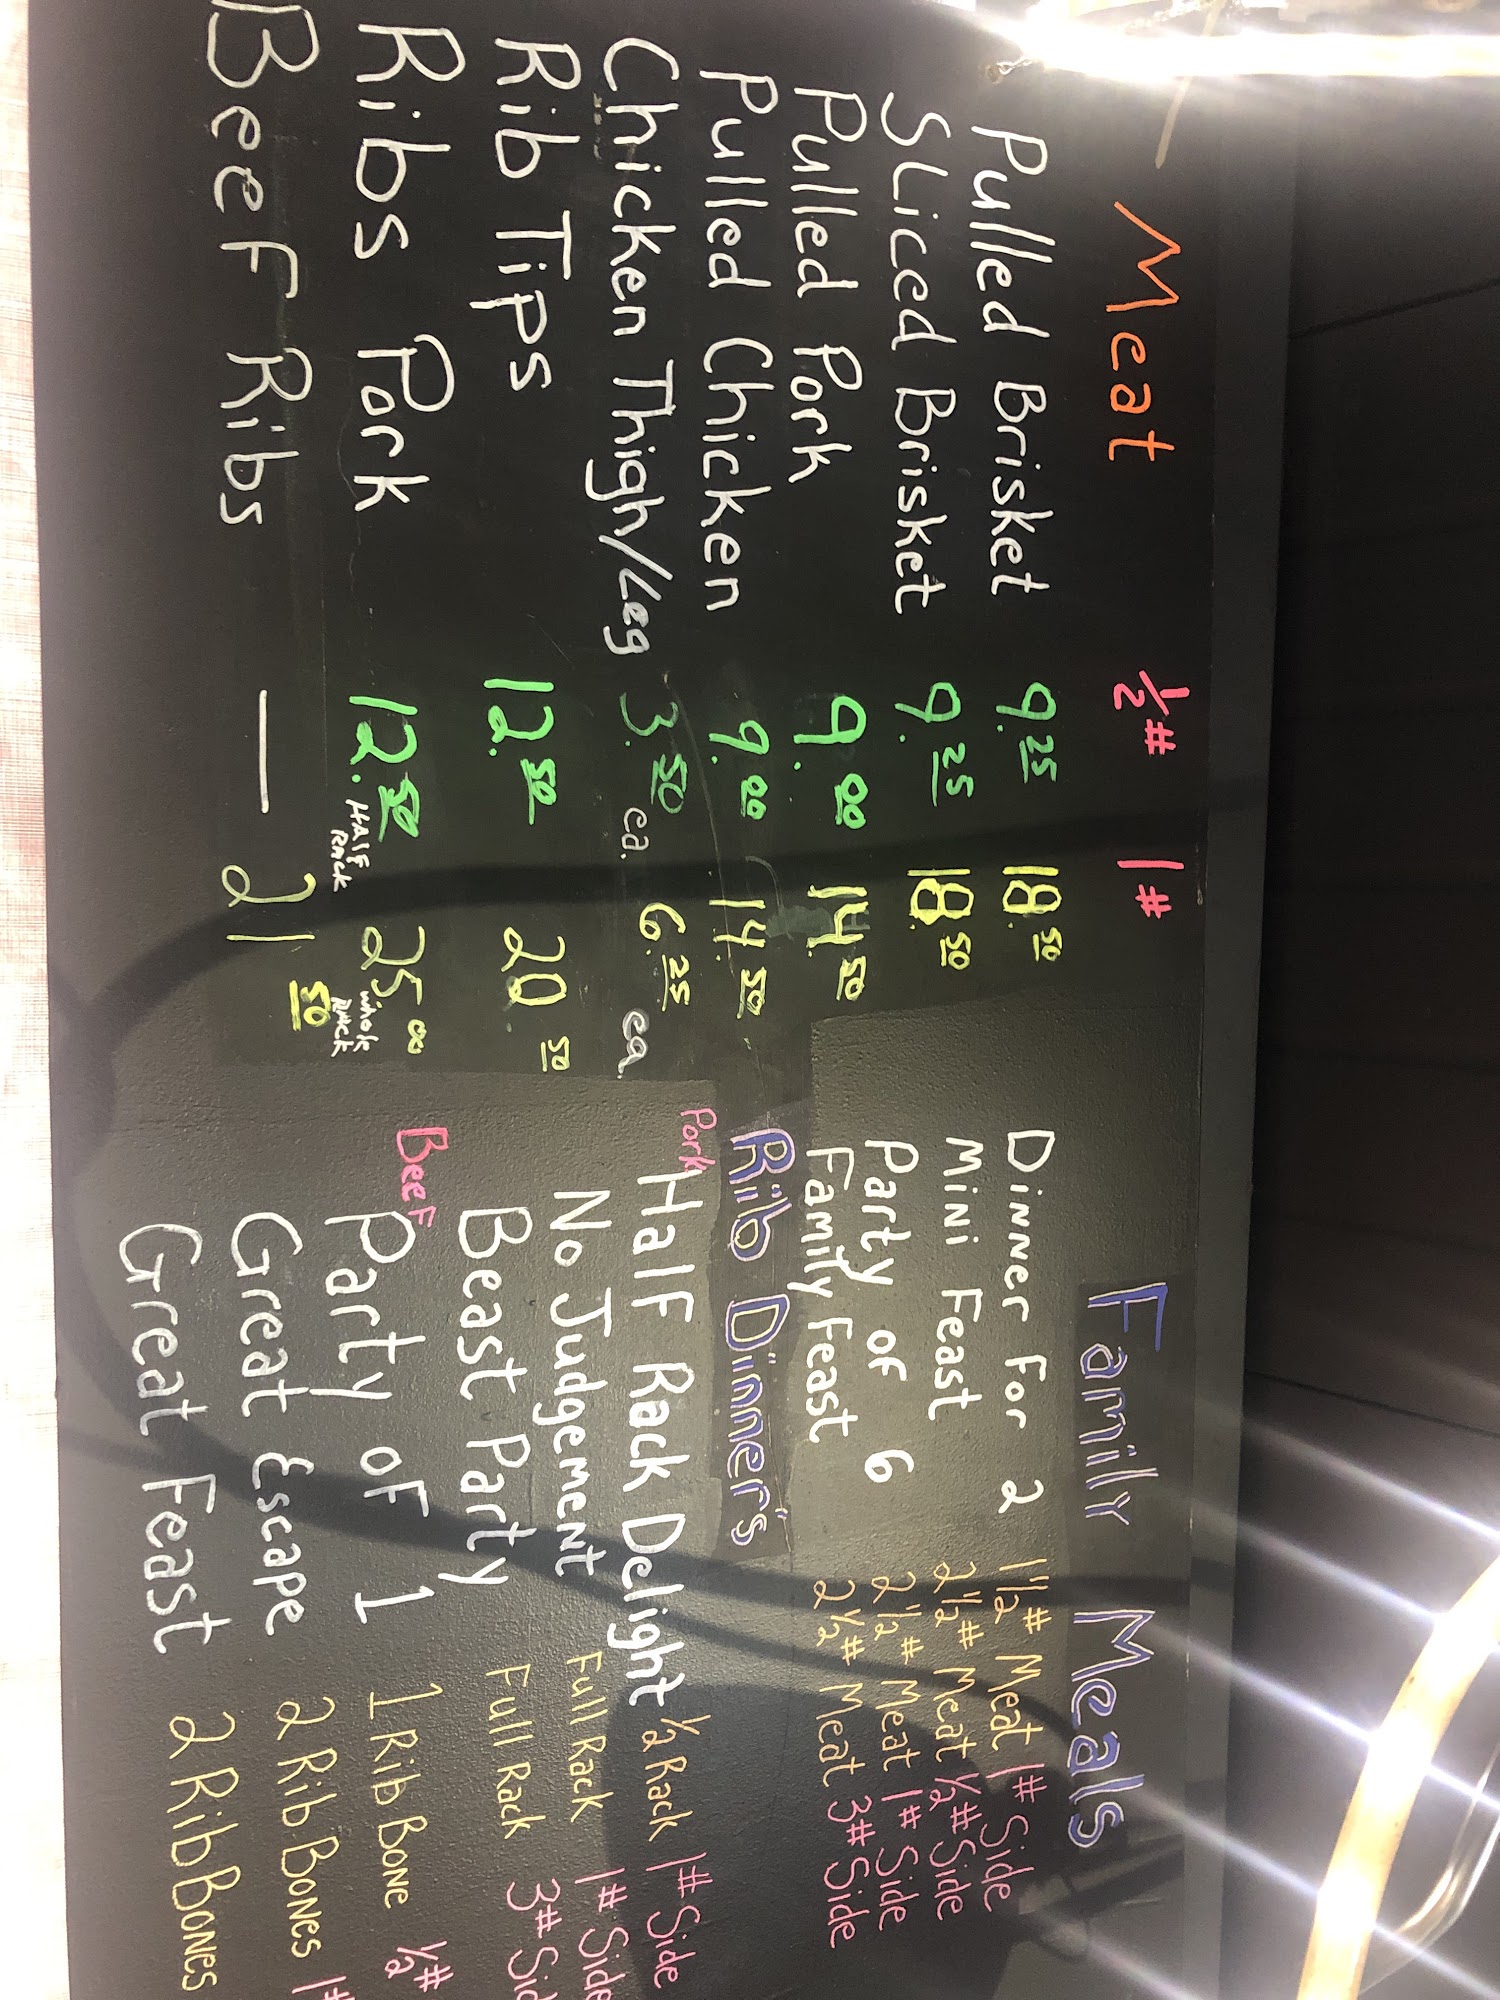 Meat ½# 1#
Pulled Brisket 9.25 18.50
Sliced Brisket 9.25 18.50
Pulled Pork 9.00 14.50
Pulled Chicken 9.00 14.50
Chicken Thigh/Leg 3.50 ea. 6.25 ea.
Rib Tips 12.50 20.50
Ribs Pork 12.50 Half Rack 25.00 Whole Rack
Beef Ribs — 21.50
Family Meals
Dinner For 2 1½# Meat 1# Side
Mini Feast 2½# Meat ½# Side
Party of 6 2½# Meat 1# Side
Family Feast 2½# Meat 3# Side
"Rib Dinners"
Pork
Half Rack Delight ½ Rack 1# Side
No Judgement Full Rack 1# Side
Beast Party Full Rack 3# Sid
Beef
Party of 1 1 Rib Bone ½#
Great Escape 2 Rib Bones 1#
Great Feast 2 Rib Bones